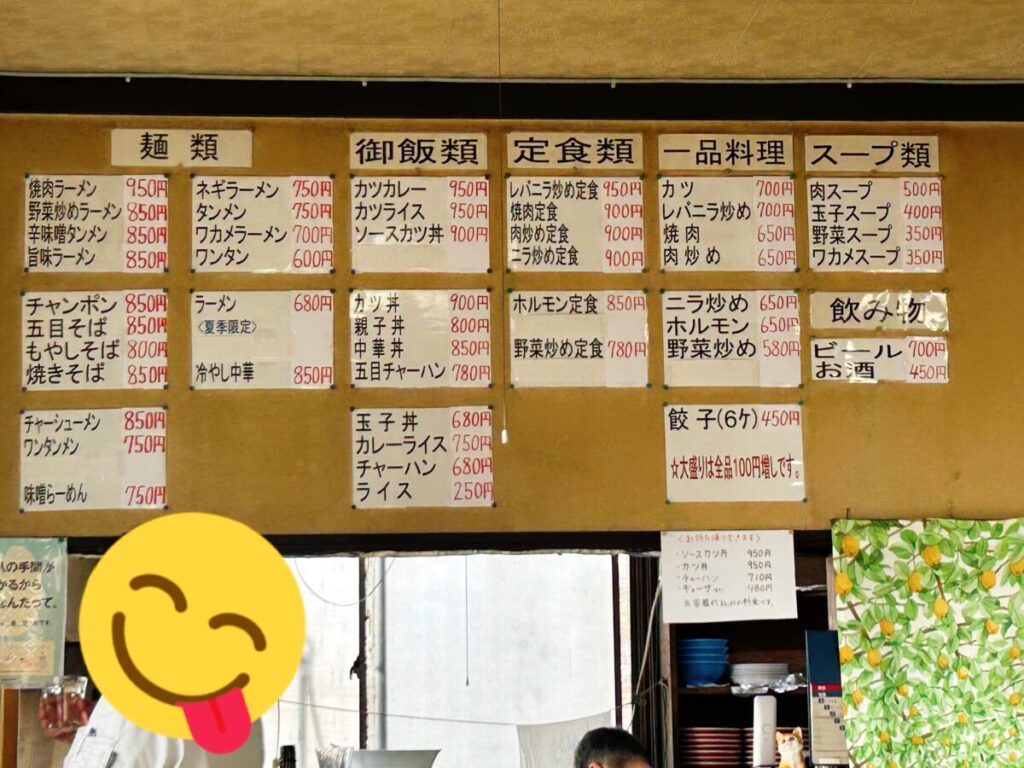 麺類
焼肉ラーメン 950円
野菜炒めラーメン 850円
辛味噌タンメン 850円
旨味ラーメン 850円
チャンポン 850円
五目そば 850円
もやしそば 800円
焼きそば 850円
チャーシューメン 850円
ワンタンメン 750円
味噌らーめん 750円
ネギラーメン 750円
タンメン 750円
ワカメラーメン 700円
ワンタン 600円
ラーメン 680円
〈夏季限定〉
冷やし中華 850円
御飯類
カツカレー 950円
カツライス 950円
ソースカツ丼 900円
カツ丼 900円
親子丼 800円
中華丼 850円
五目チャーハン 780円
玉子丼 680円
カレーライス 750円
チャーハン 680円
ライス 250円
定食類
レバニラ炒め定食 950円
焼肉定食 900円
肉炒め定食 900円
ニラ炒め定食 900円
ホルモン定食 850円
野菜炒め定食 780円
一品料理
カツ 700円
レバニラ炒め 700円
焼肉 650円
肉炒め 650円
ニラ炒め 650円
ホルモン 650円
野菜炒め 580円
餃子(6ケ) 450円
☆大盛りは全品100円増しです。
スープ類
肉スープ 500円
玉子スープ 400円
野菜スープ 350円
ワカメスープ 350円
飲み物
ビール 700円
お酒 450円
〈お持ち帰りできます〉
・ソースカツ丼 950円
・カツ丼 950円
・チャーハン 710円
・ギョーザ 480円
の手間が
かるから
なんだって。